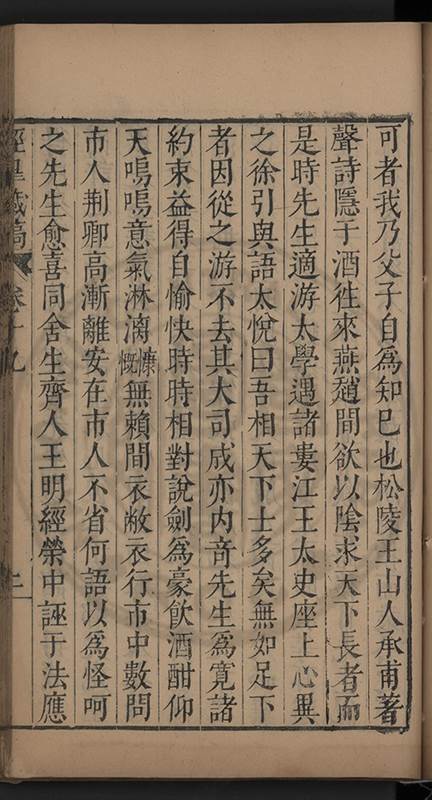 可者我乃父子自爲知己也松陵王山人承甫著
聲詩隱于酒徃來燕趙間欲以陰求天下長者而
是時先生適游太學遇諸婁江王太史座上心異
之徐引與語太悅曰吾相天下士多矣無如足下
者因從之游不去其大司成亦内奇先生爲寬諸
約束益得自愉快時時相對說劍爲豪飮酒酣仰
天嗚嗚意氣淋漓慷慨無賴間衣敝衣行市中數問
市人荆卿高漸離安在市人不省何語以爲怪呵
之先生愈喜同舍生齊人王明經榮中誣于法應
經臯藏稿 卷十九 二